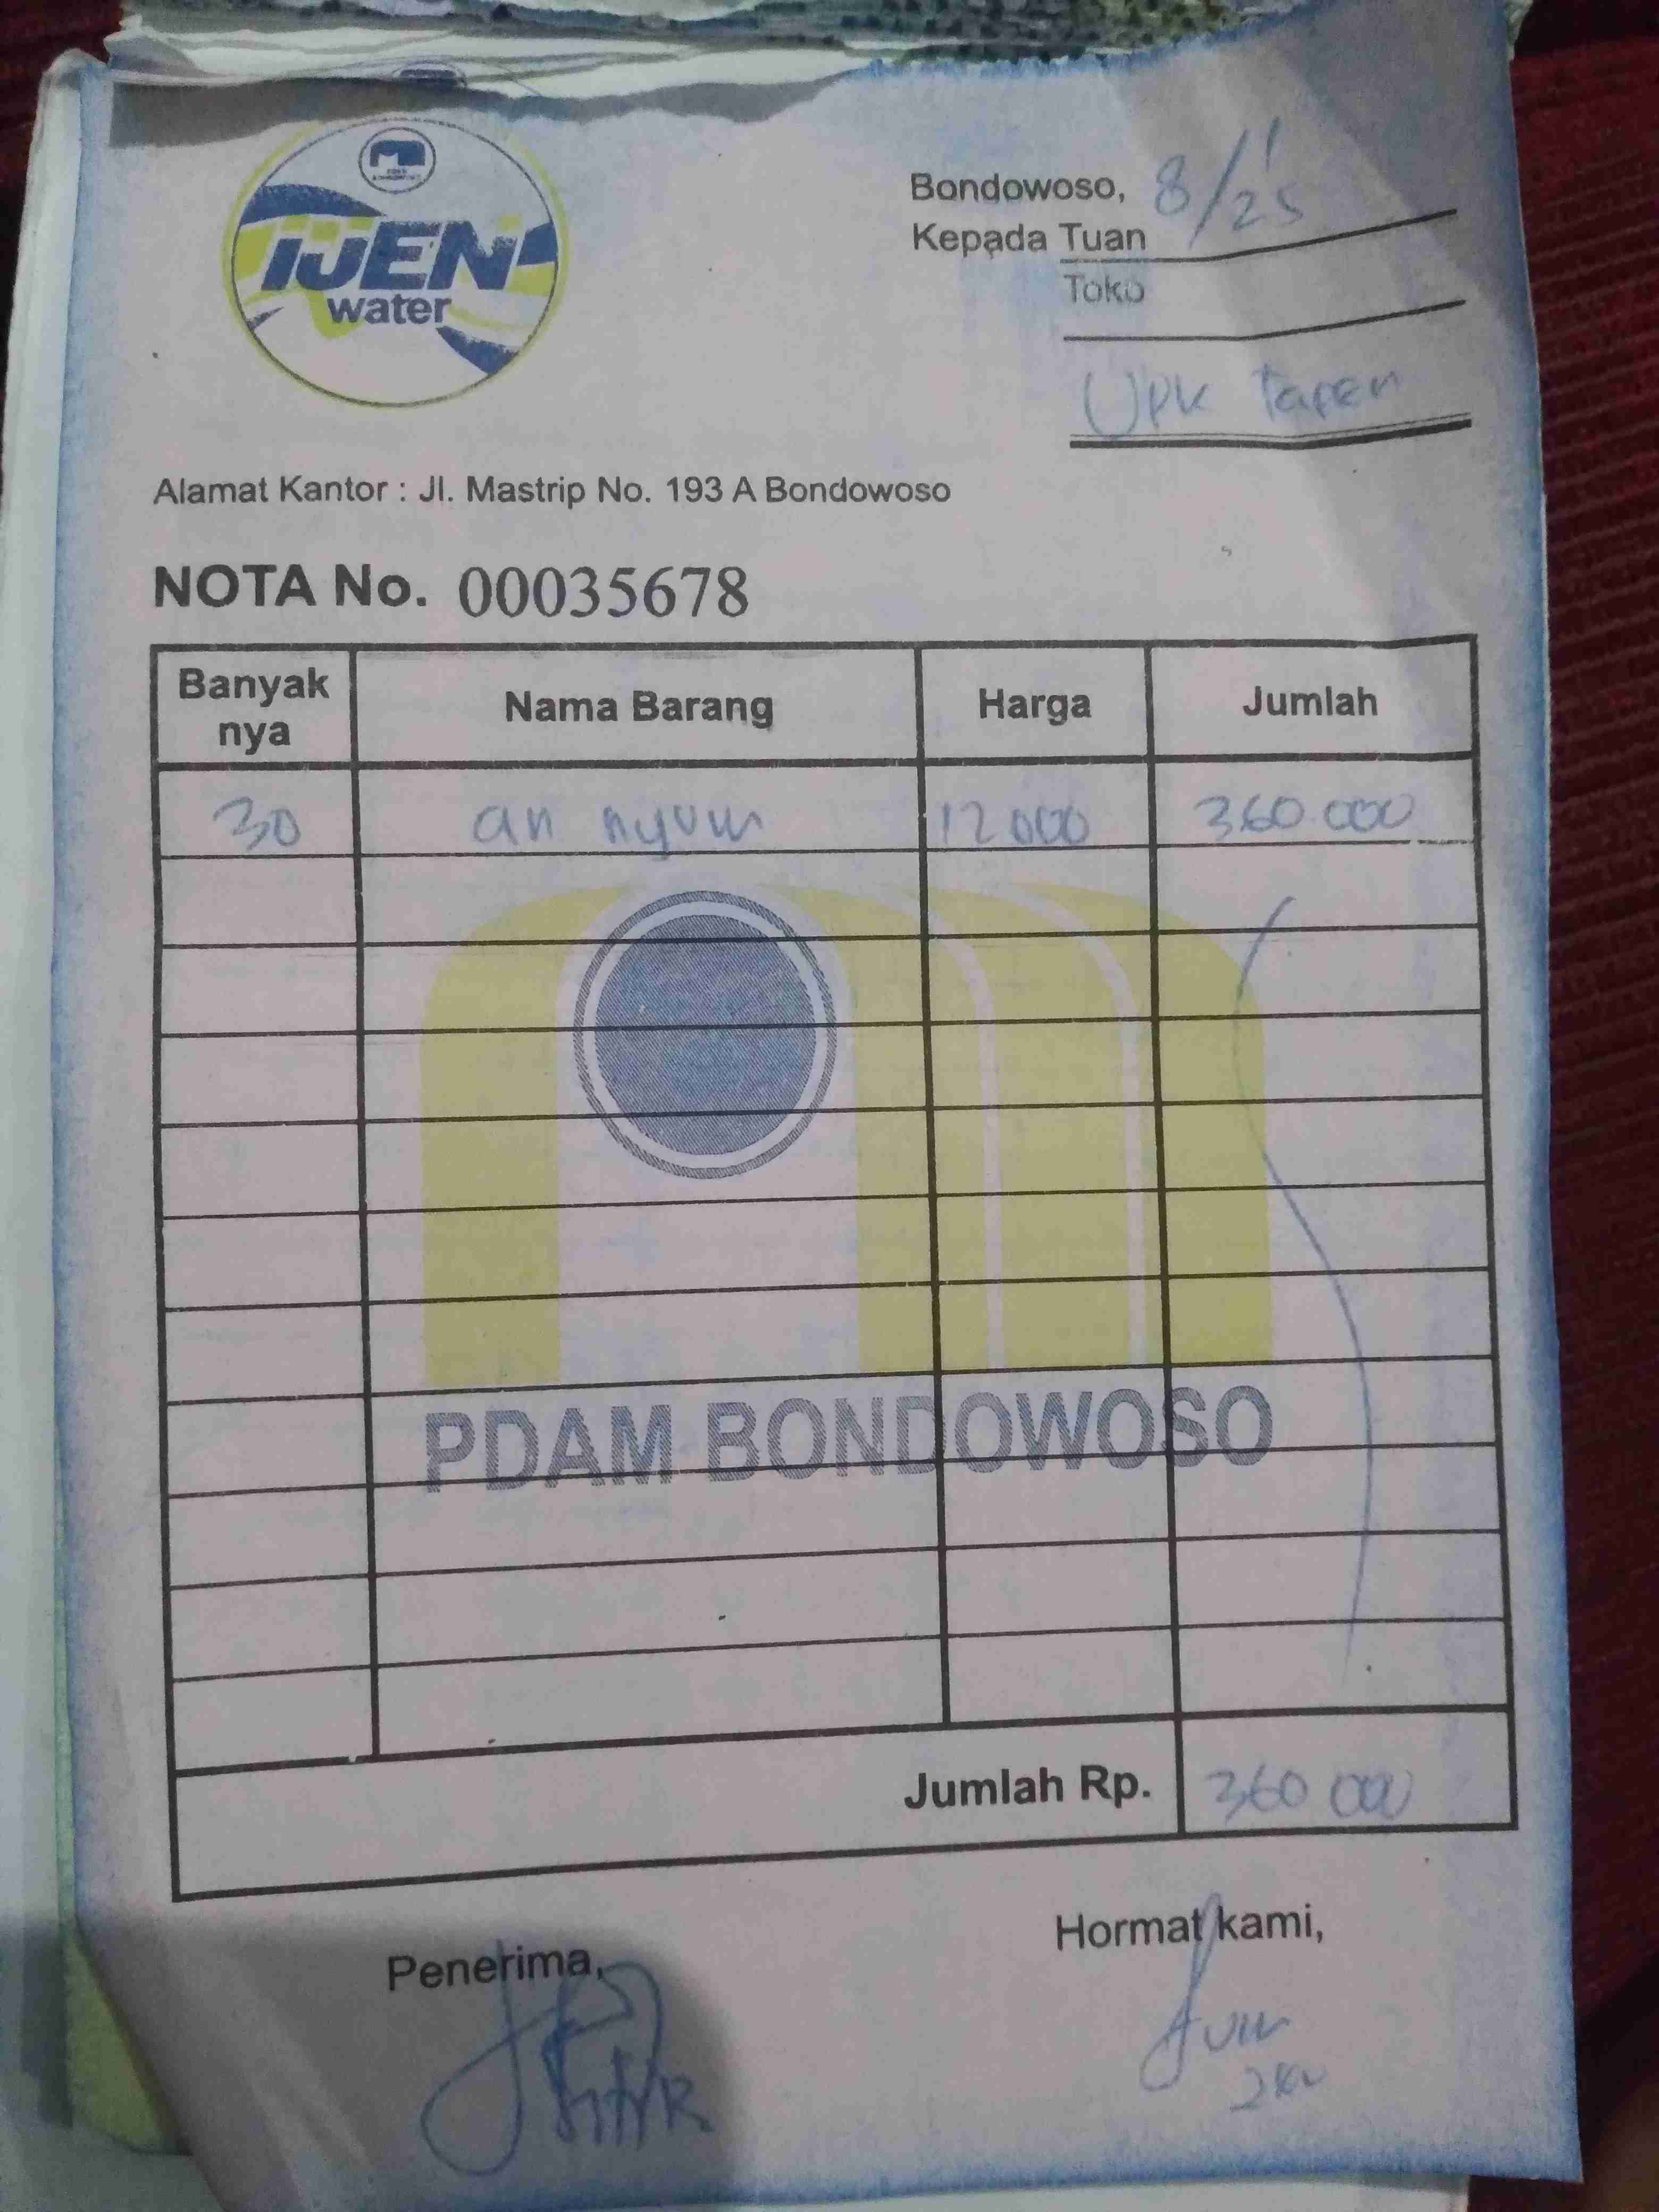 IJEN
water
Bondowoso, 8/1/25
Kepada Tuan
Toko
UPK Tapen
Alamat Kantor : Jl. Mastrip No. 193 A Bondowoso
NOTA No. 00035678
Banyak nya Nama Barang Harga Jumlah
30 an nyum 12000 360.000
PDAM BONDOWOSO
Jumlah Rp. 360 000
Penerima, Hormat kami,